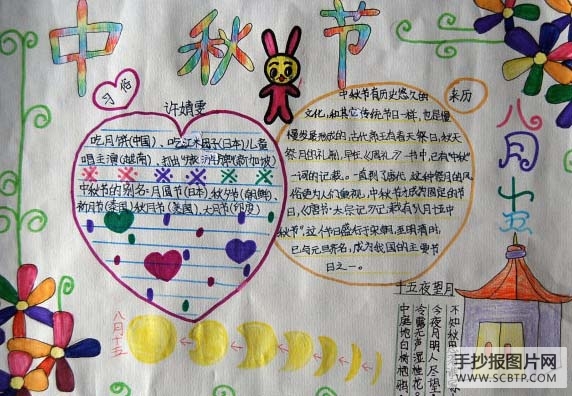 中秋节
习俗
许婧雯
吃月饼(中国)、吃江米团子(日本)儿童
唱主角(越南)、
中秋节的别名:月圆节(日本)秋夕节(朝鲜)、
新月节(泰国)秋月节(美国)、大月节(印度)
来历
中秋节有历史悠久的
文化,和其它传统节日一样,也是慢
慢发展形成的,古代帝王有春天祭日,秋天
祭月的礼制,早在《周礼》一书中,已有"中秋"
一词的记载。一直到了唐代,这种祭月的风
俗更为人们重视,中秋节才成为固定的节
日,《唐书·太宗记》记载有"八月十五中
秋节",这个节日盛行于宋朝,至明清时,
已与元旦齐名,成为我国的主要节
日之一。
八月十五
十五夜望月
中庭地白树栖鸦
冷露无声湿桂花。
今夜月明人尽望
不知秋思
八月十五
手抄报图片网
WWW.SCBTP.COM